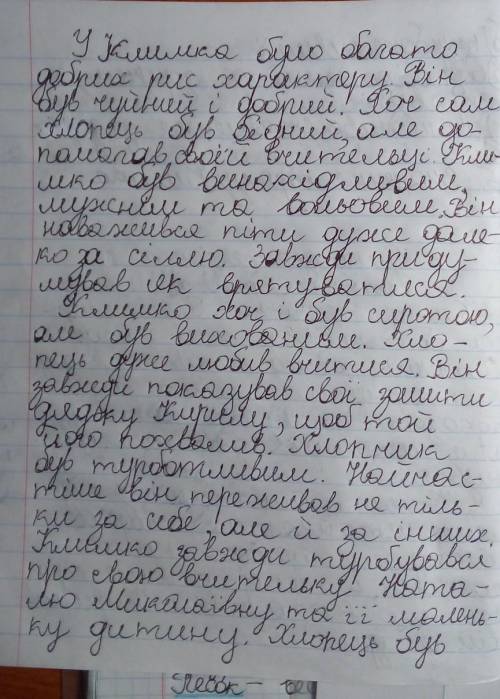 У Климка було багато
добрих рис характеру. Він
був чуйний і добрий. Хоч сам
хлопець був бідний, але до-
помагав своїй вчительці. Кли-
мко був винахідливим,
мужнім та вольовим. Він
наважився піти дуже дале-
ко за сіллю. Завжди приду-
мував як врятуватися.
Климко хоч і був сиротою,
але був вихованим. Хло-
пець дуже любив вчитися. Він
завжди показував свої зошити
дядьку Кирилу, щоб той
його похвалив. Хлопчик
був турботливим. Найчас-
тіше він переживав не тіль-
ки за себе, але й за інших.
Климко завжди турбувався
про свою вчительку Ната-
лю Миколаївну та її малень-
ку дитину. Хлопець був